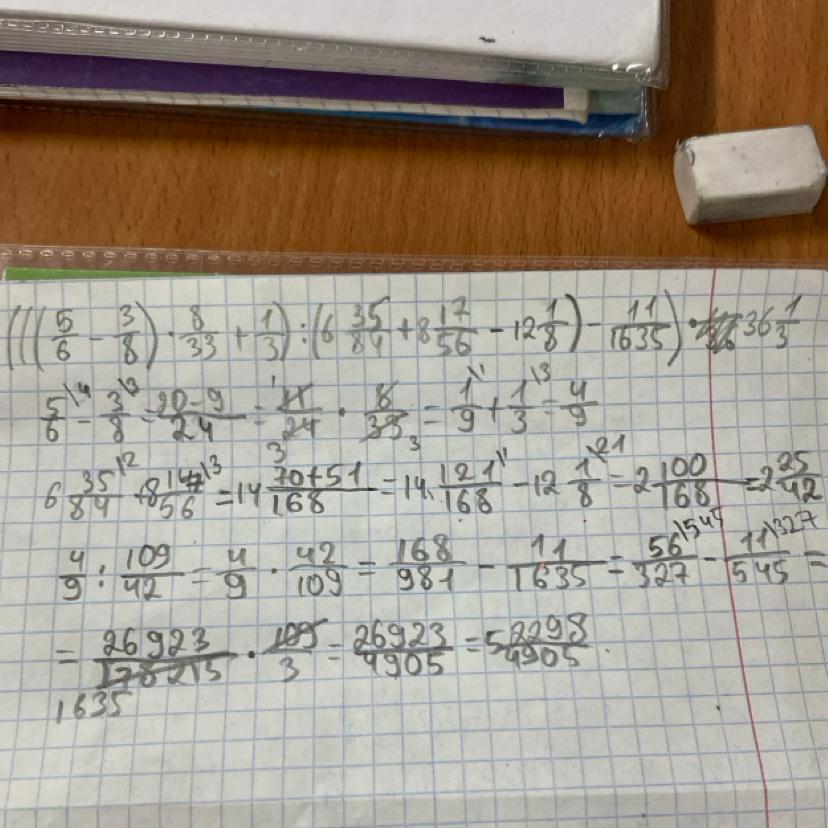 (((5/6 - 3/8) · 8/33 + 1/3) : (6 35/84 + 8 17/56 - 12 1/8) - 11/1635) · 36 1/3
5/6\4 - 3/8\3 = 20-9/24 = 11/24 · 8/33 = 1/9\1 + 1/3\3 = 4/9
6 35/84\2 + 8 17/56\3 = 14 70+51/168 = 14 121/168\1 - 12 1/8\21 = 2 100/168 = 2 25/42
4/9 : 109/42 = 4/9 · 42/109 = 168/981 - 11/1635 = 56/327\545 - 11/545\327 =
= 26923/178215 · 109/3 = 26923/4905 = 5 2298/4905.
1635